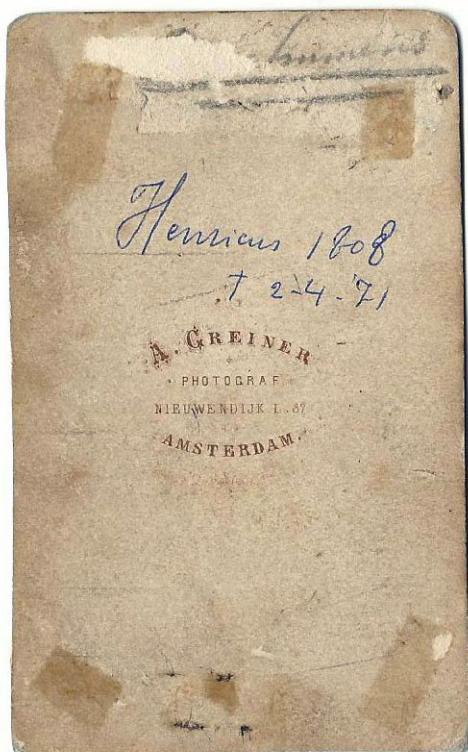 Henricus 1808
† 2-4-'71
A. GREINER
PHOTOGRAF
NIEUWENDIJK L. 87
AMSTERDAM.